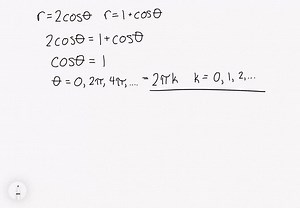 r=2cosθ r=1+cosθ
2cosθ=1+cosθ
cosθ=1
θ=0, 2π, 4π, .... - 2πk k=0, 1, 2, ...